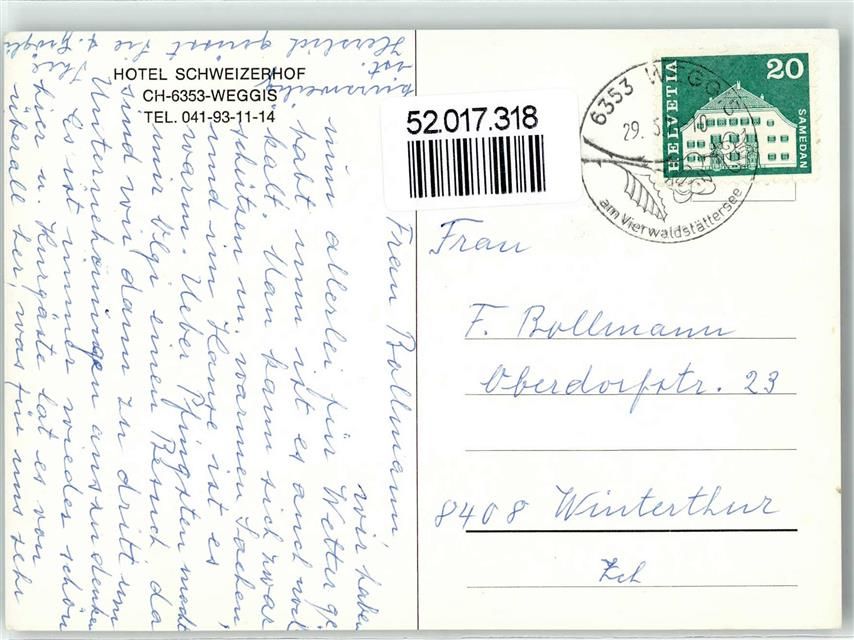 HOTEL SCHWEIZERHOF
CH-6353-WEGGIS
TEL. 041-93-11-14
52.017.318
6353 WEGGIS
29. 5.
am Vierwaldstättersee
HELVETIA
20
SAMEDAN
Frau
F. Bollmann
Oberdorfstr. 23
8408 Winterthur
Zch
Frau Bollmann,
wir haben
nun allerlei für Wetter ge-
habt nun ist es auch noch
kalt. Man kann sich zwar
schützen m. warmen Sachen
und im Hause ist es
warm. Ueber Pfingsten macht
mir Vlgi einen Besuch da
sind wir dann zu dritt um
Unternehmungen auszudenken
Es ist immer wieder schön
hier u. Kurgäste hat es von
überall her, was für uns sehr
kurzweilig
ist.
Herzlich grüsst Sie